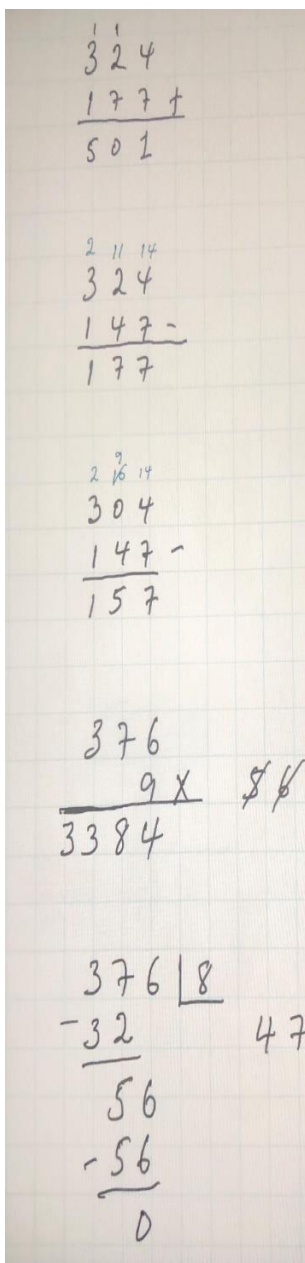 1 1
3 2 4
1 7 7 +
5 0 1
2 11 14
3 2 4
1 4 7 -
1 7 7
9
2 10 14
3 0 4
1 4 7 -
1 5 7
3 7 6
9 x 5 6
3 3 8 4
3 7 6 | 8
- 3 2 4 7
5 6
- 5 6
0